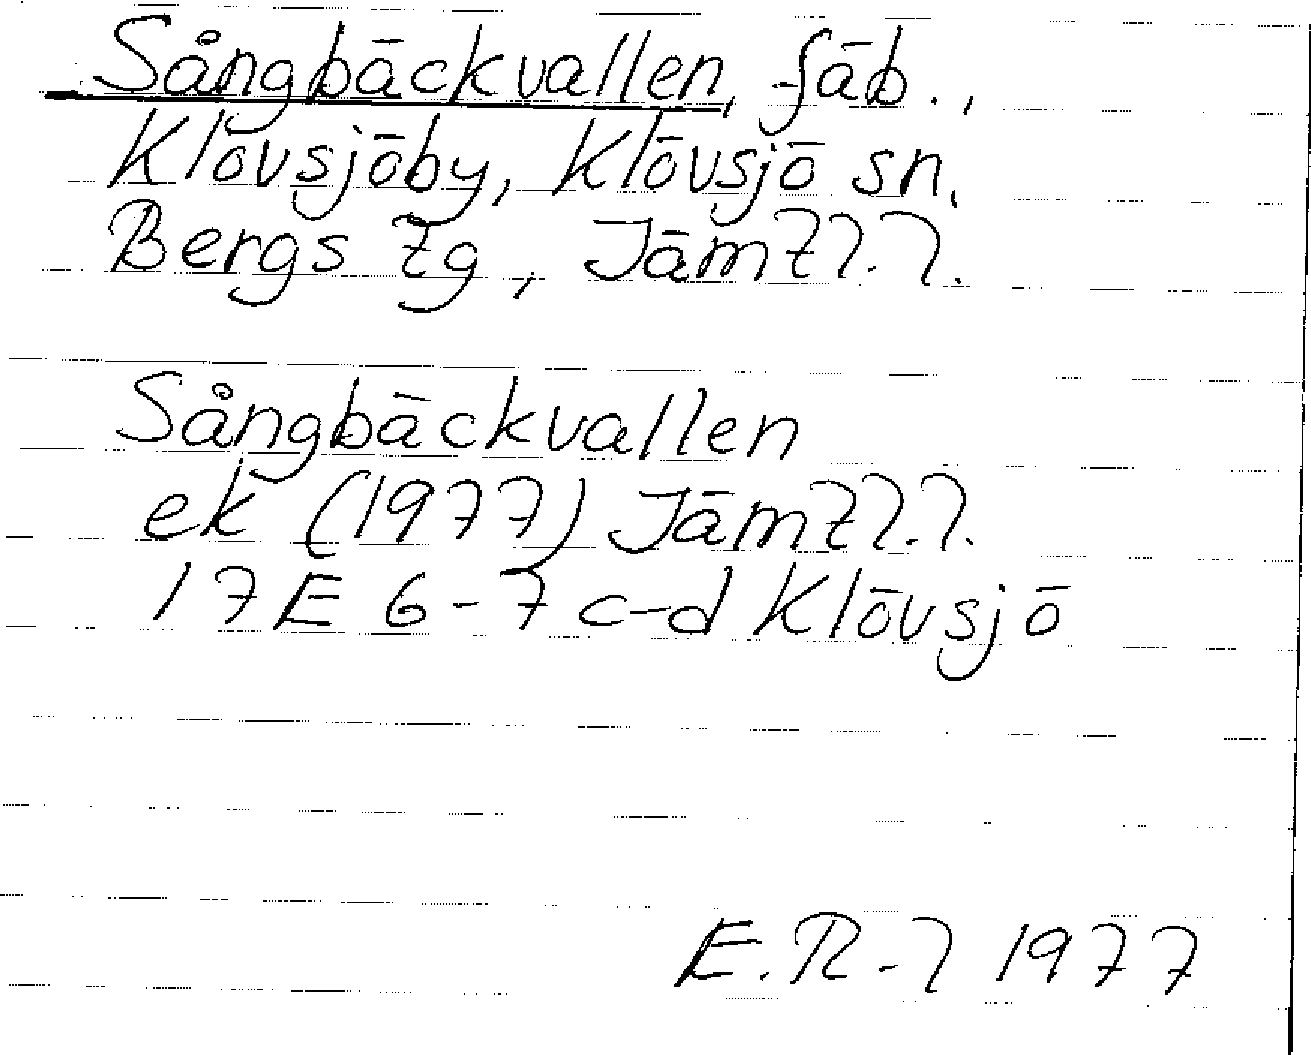 Sångbäckvallen, fäb.,
Klövsjöby, Klövsjö sn,
Bergs tg, Jämtl.l.
Sångbäckvallen
ek (1977) Jämtl.l.
17E 6-7 c-d Klövsjö
E.R-l 1977